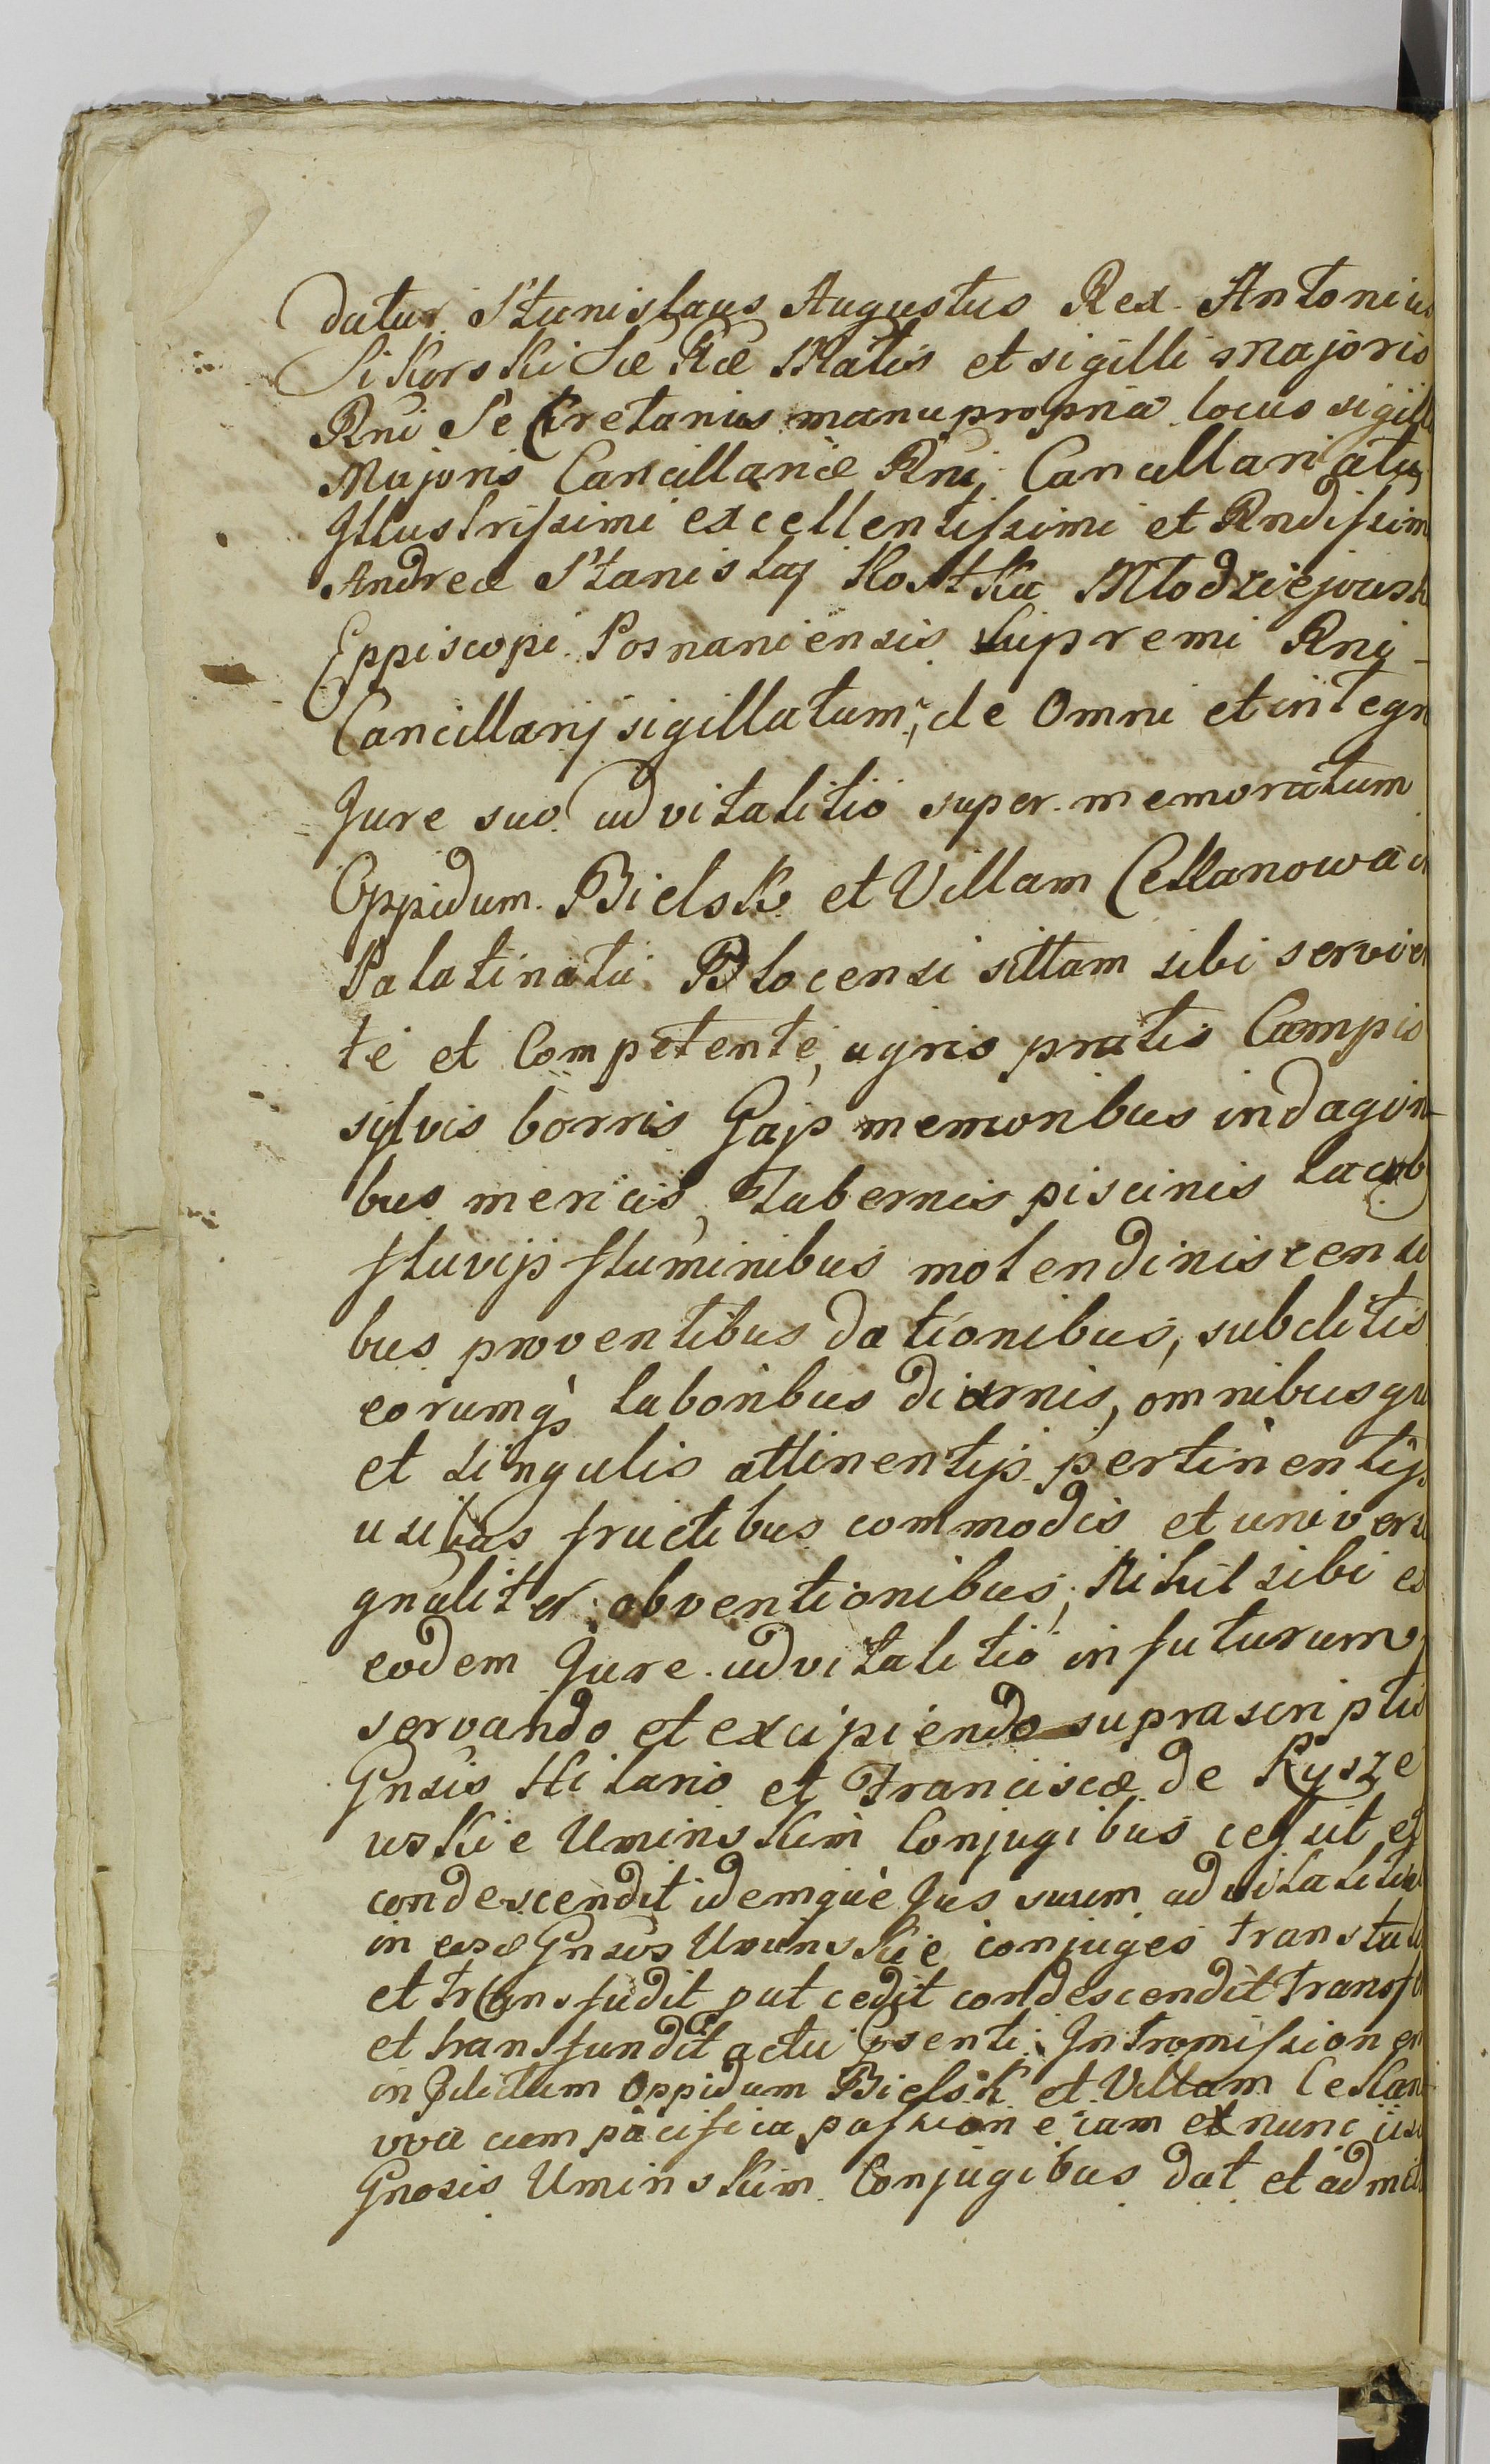 datur. Stanislaus Augustus Rex. Antonius
Sikorski Sæ Ræ Mattis et sigilli Majoris
Rni Secretarius manu propria locus sigilli
Majoris Cancellariæ Rni. Cancellariatus
Illustrissimi excellentissimi et Rndissimi
Andreæ Stanislaj Kostka Młodziejowsk
Eppiscopi Posnaniensis Supremi Rnij
Cancellarij sigillatum, de Omni et integr
Jure suo advitalitio super memoratum
Oppidum Bielsk et Villam Cekanowa in
Palatinatu Plocensi sittam sibi servien
te et Competente, agris pratis Campis
sylvis borris Gajs memoribus indagini
bus mericis, Tabernis piscinis lacub
fluvijs fluminibus molendinis censi
bus proventibus dationibus, subditis
eorumq laboribus diurnis, omnibusqu
et singulis attinentijs pertinentijs
usibus fructibus commodis et univers
gnaliter obventionibus, Nihil sibi ex
eodem Jure advitalitio in futurum
servando et excipiendo suprascriptis
Gnsis Hilario et Franciscæ de Rysze
wskie Uminskim Conjugibus cessit et
condescendit idemque Jus suum advitalitiu
in eosd Gnsos Uminskie conjuges transtuli
et transfudit put cedit condescendit transf
et transfundit actu psenti. Intromissionem
in Oppidum Bielsk et Villam Cekano
wa cum pacifica possione iam ex nunc iisd
Gnosis Uminskim Conjugibus dat et admit